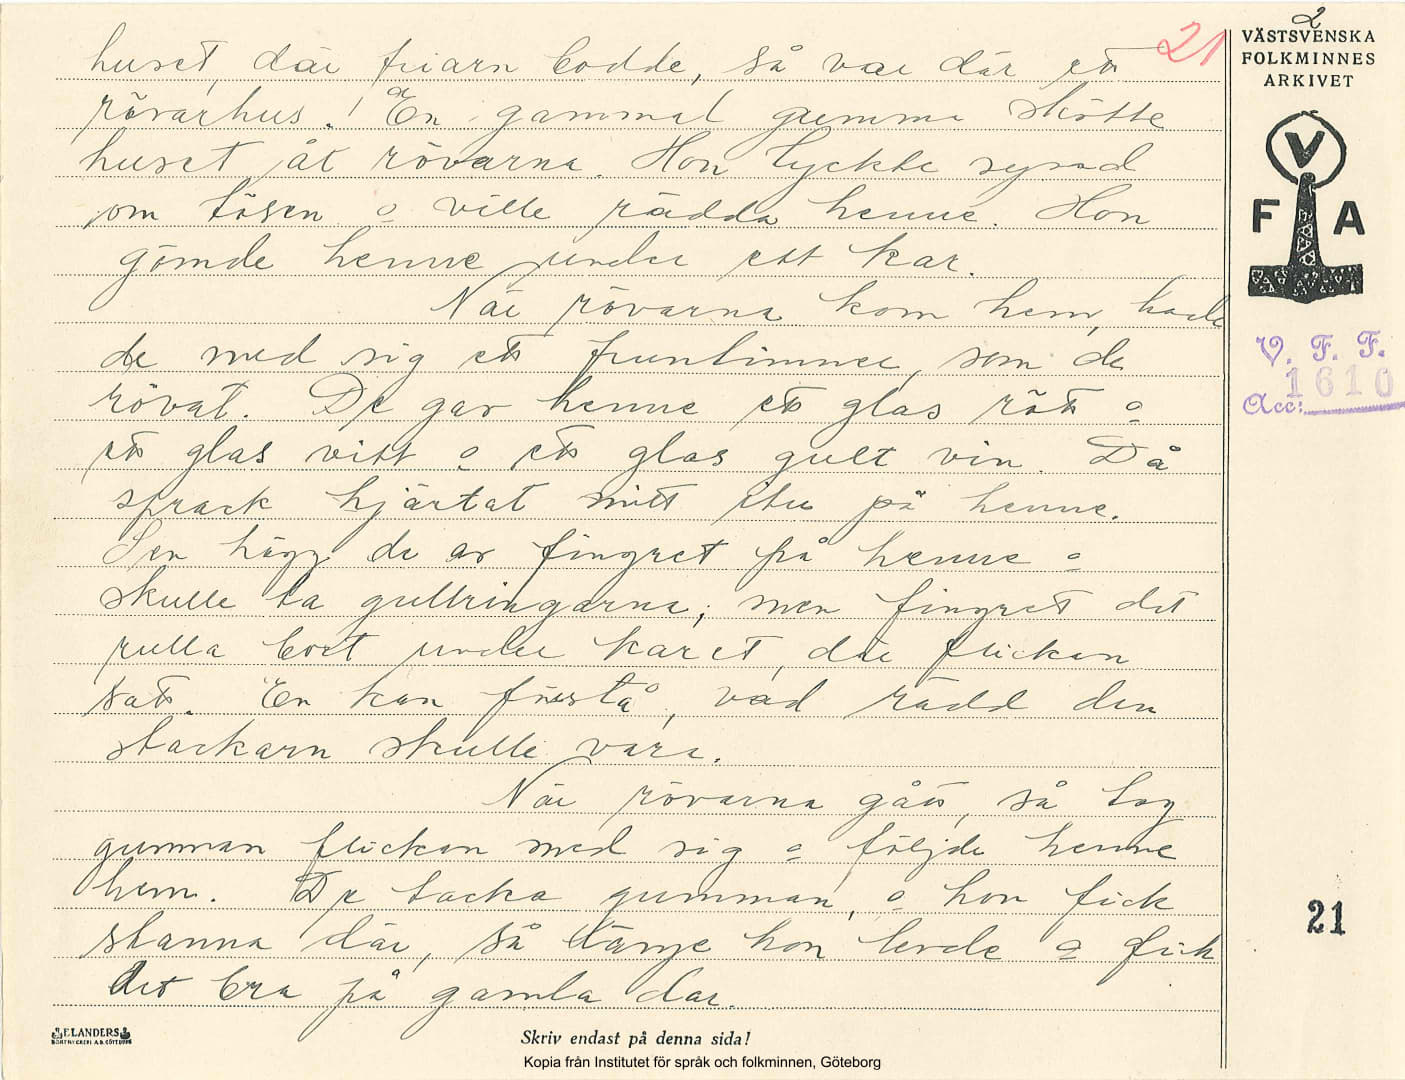 huset, där friarn bodde, så var där ett
rövarhus. En gammal gumma skötte
huset åt rövarna. Hon tyckte synd
om tösen o ville rädda henne. Hon
gömde henne under ett kar.
När rövarna kom hem, hade
de med sig ett fruntimmer, som de
rövat. De gav henne ett glas rött o
ett glas vitt o ett glas gult vin. Då
sprack hjärtat mitt itu på henne.
Sen högg de av fingret på henne o
skulle ta gullringarna, men fingret det
rulla bort under karet, där flickan
satt. En kan förstå, vad rädd den
stackarn skulle vara.
När rövarna gått, så tog
gumman flickan med sig o följde henne
hem. De tacka gumman, o hon fick
stanna där, så länge hon levde o fick
det bra på gamla dar.
21
2
VÄSTSVENSKA
FOLKMINNES
ARKIVET
V
F A
V. F. F.
Acc: 1610
21
ELANDERS
BOKTRYCKERI A.B. GÖTEBORG
Skriv endast på denna sida!
Kopia från Institutet för språk och folkminnen, Göteborg